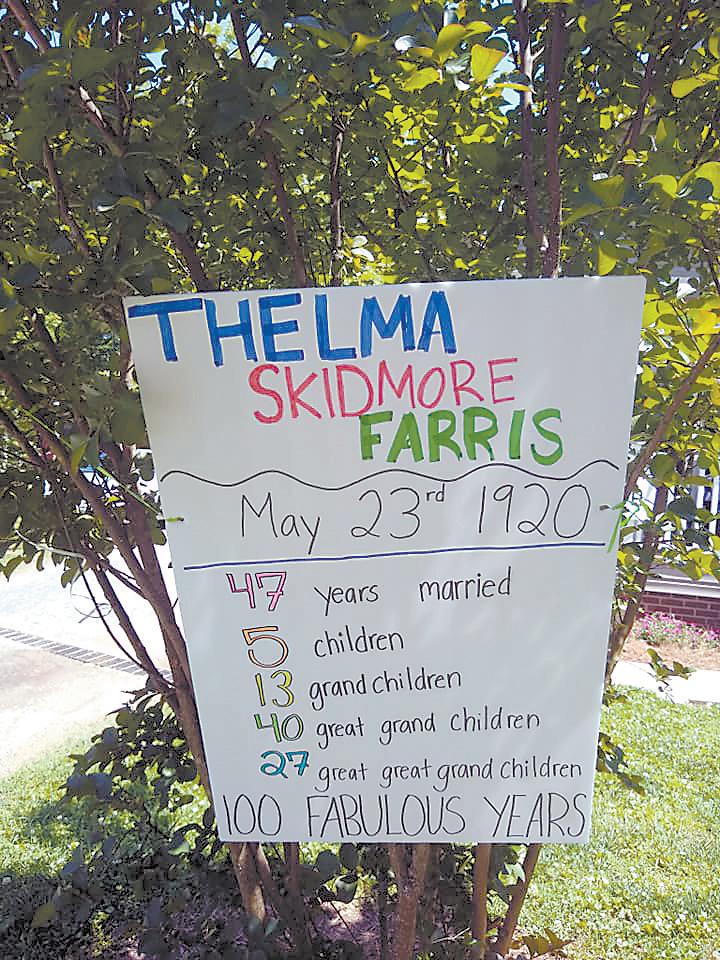 THELMA
SKIDMORE
FARRIS
May 23rd 1920
47 years married
5 children
13 grandchildren
40 great grand children
27 great great grand children
100 FABULOUS YEARS